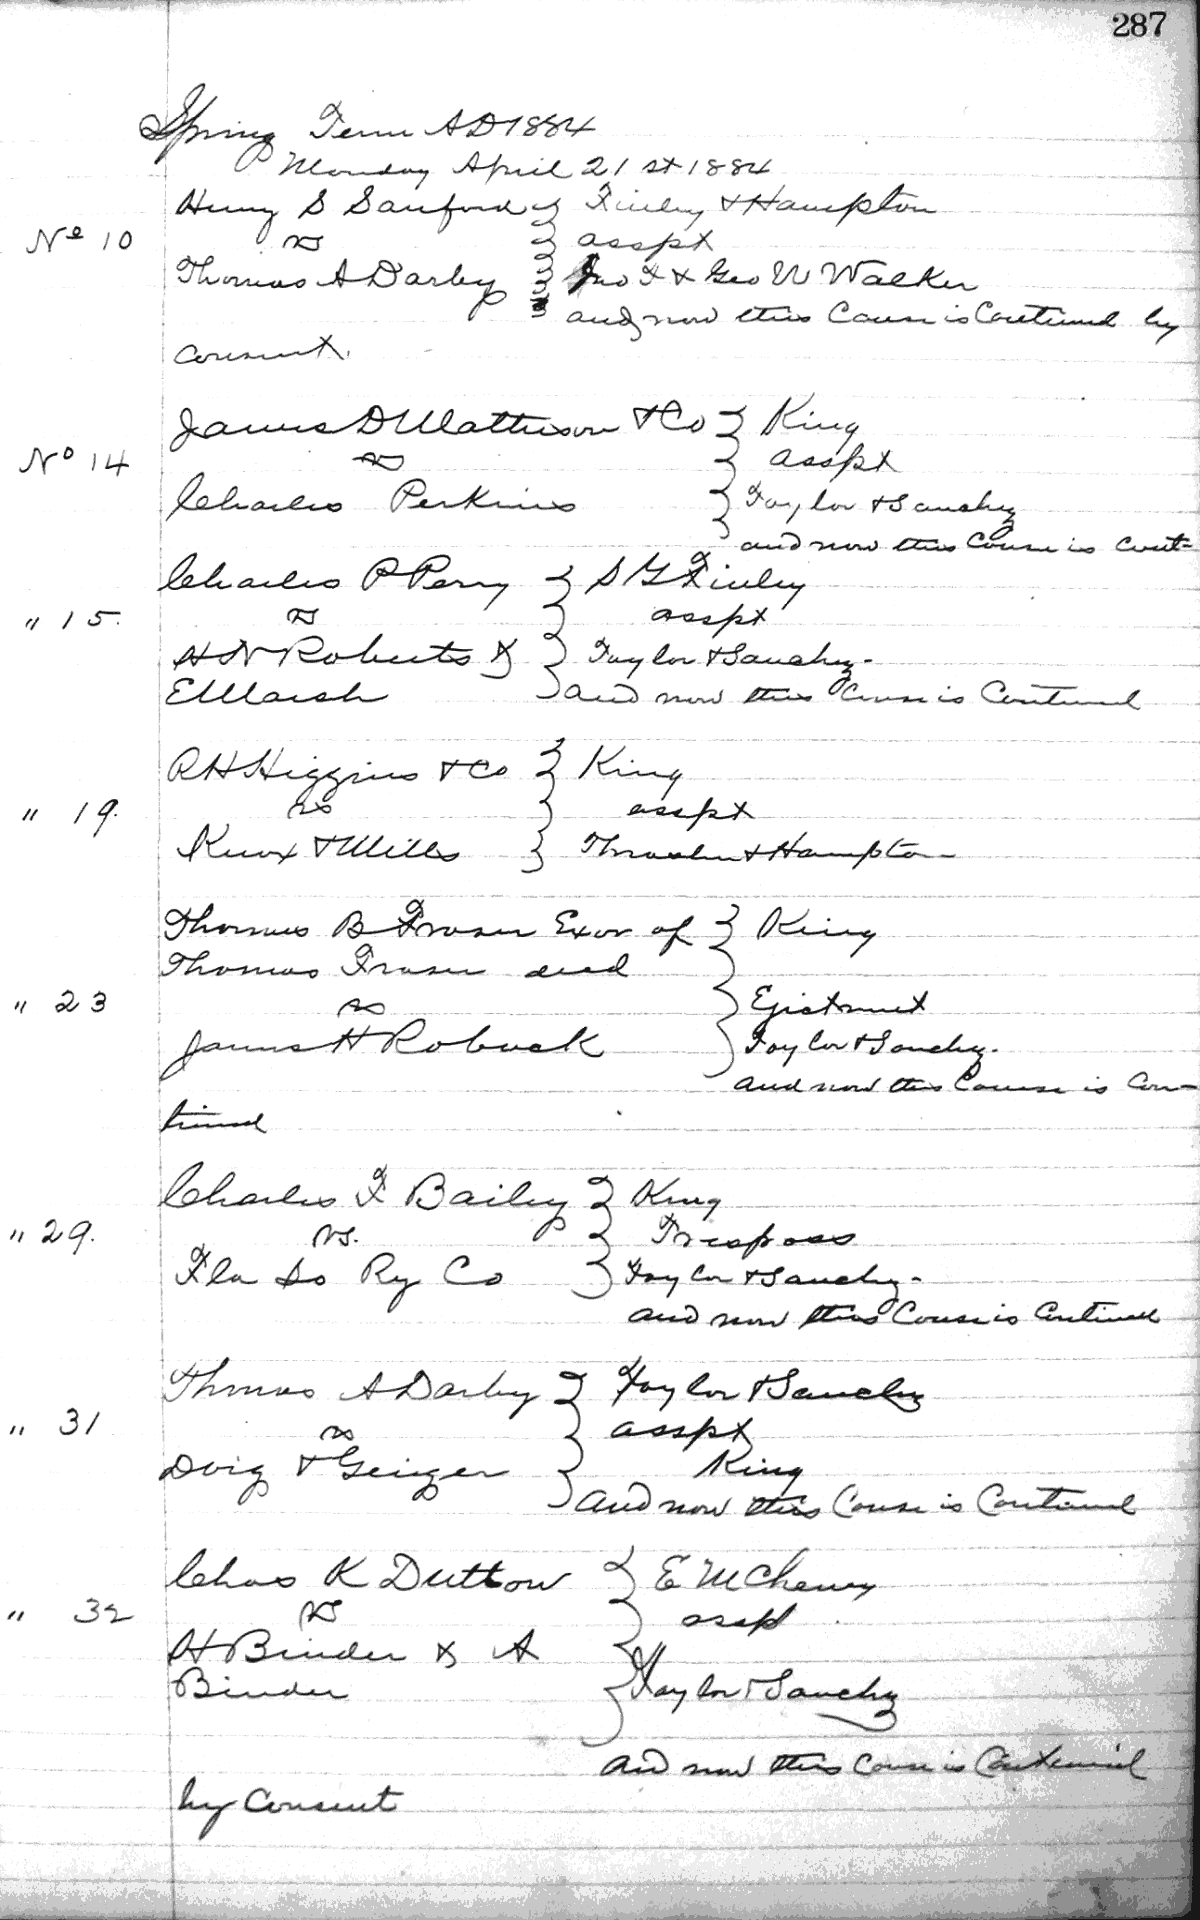 287
Spring Term AD 1884
Monday April 21st 1884
Henry S Sanford } Finley & Hampton
No 10 vs } asspt
Thomas A Darby } Jno F & Geo W Walker
and now this Cause is Continued by
consent.
James D Matheson & Co } King
No 14 vs } asspt
Charles Perkins } Taylor & Sanchez
and now this Cause is Cont=
Charles P Perry } S G Finley
" 15. vs } asspt
H N Roberts & } Taylor & Sanchez-
E Marsh } and now this Cause is Continued
R H Higgins & Co } King
" 19. vs } asspt
Knox & Mills } Thrasher & Hampton
Thomas B Fraser Exor of } King
Thomas Fraser decd
" 23 vs } Ejectment
James H Robuck } Taylor & Sanchez-
and now this Cause is Con-
tinued
Charles F Bailey } King
" 29. vs. } Trespass
Fla So Ry Co } Taylor & Sanchez-
and now this Cause is Continued
Thomas A Darby } Taylor & Sanchez
" 31 vs } asspt
Doig & Geiger } King
and now this Cause is Continued
Chas K Dutton } E M Cheney
" 32 vs } assp
H Binder & A
Binder } Taylor & Sanchez
and now this Cause is Continued
by Consent